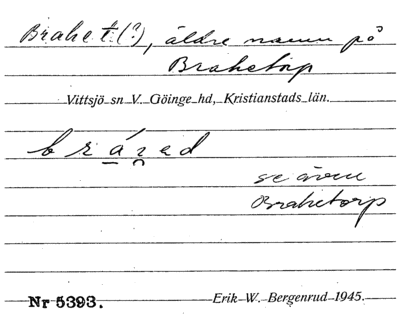 Brahet(?), äldre namn på
Brahetorp
Vittsjö sn V. Göinge hd, Kristianstads län.
se även
Brahetorp
Nr 5393.
Erik W. Bergenrud 1945.